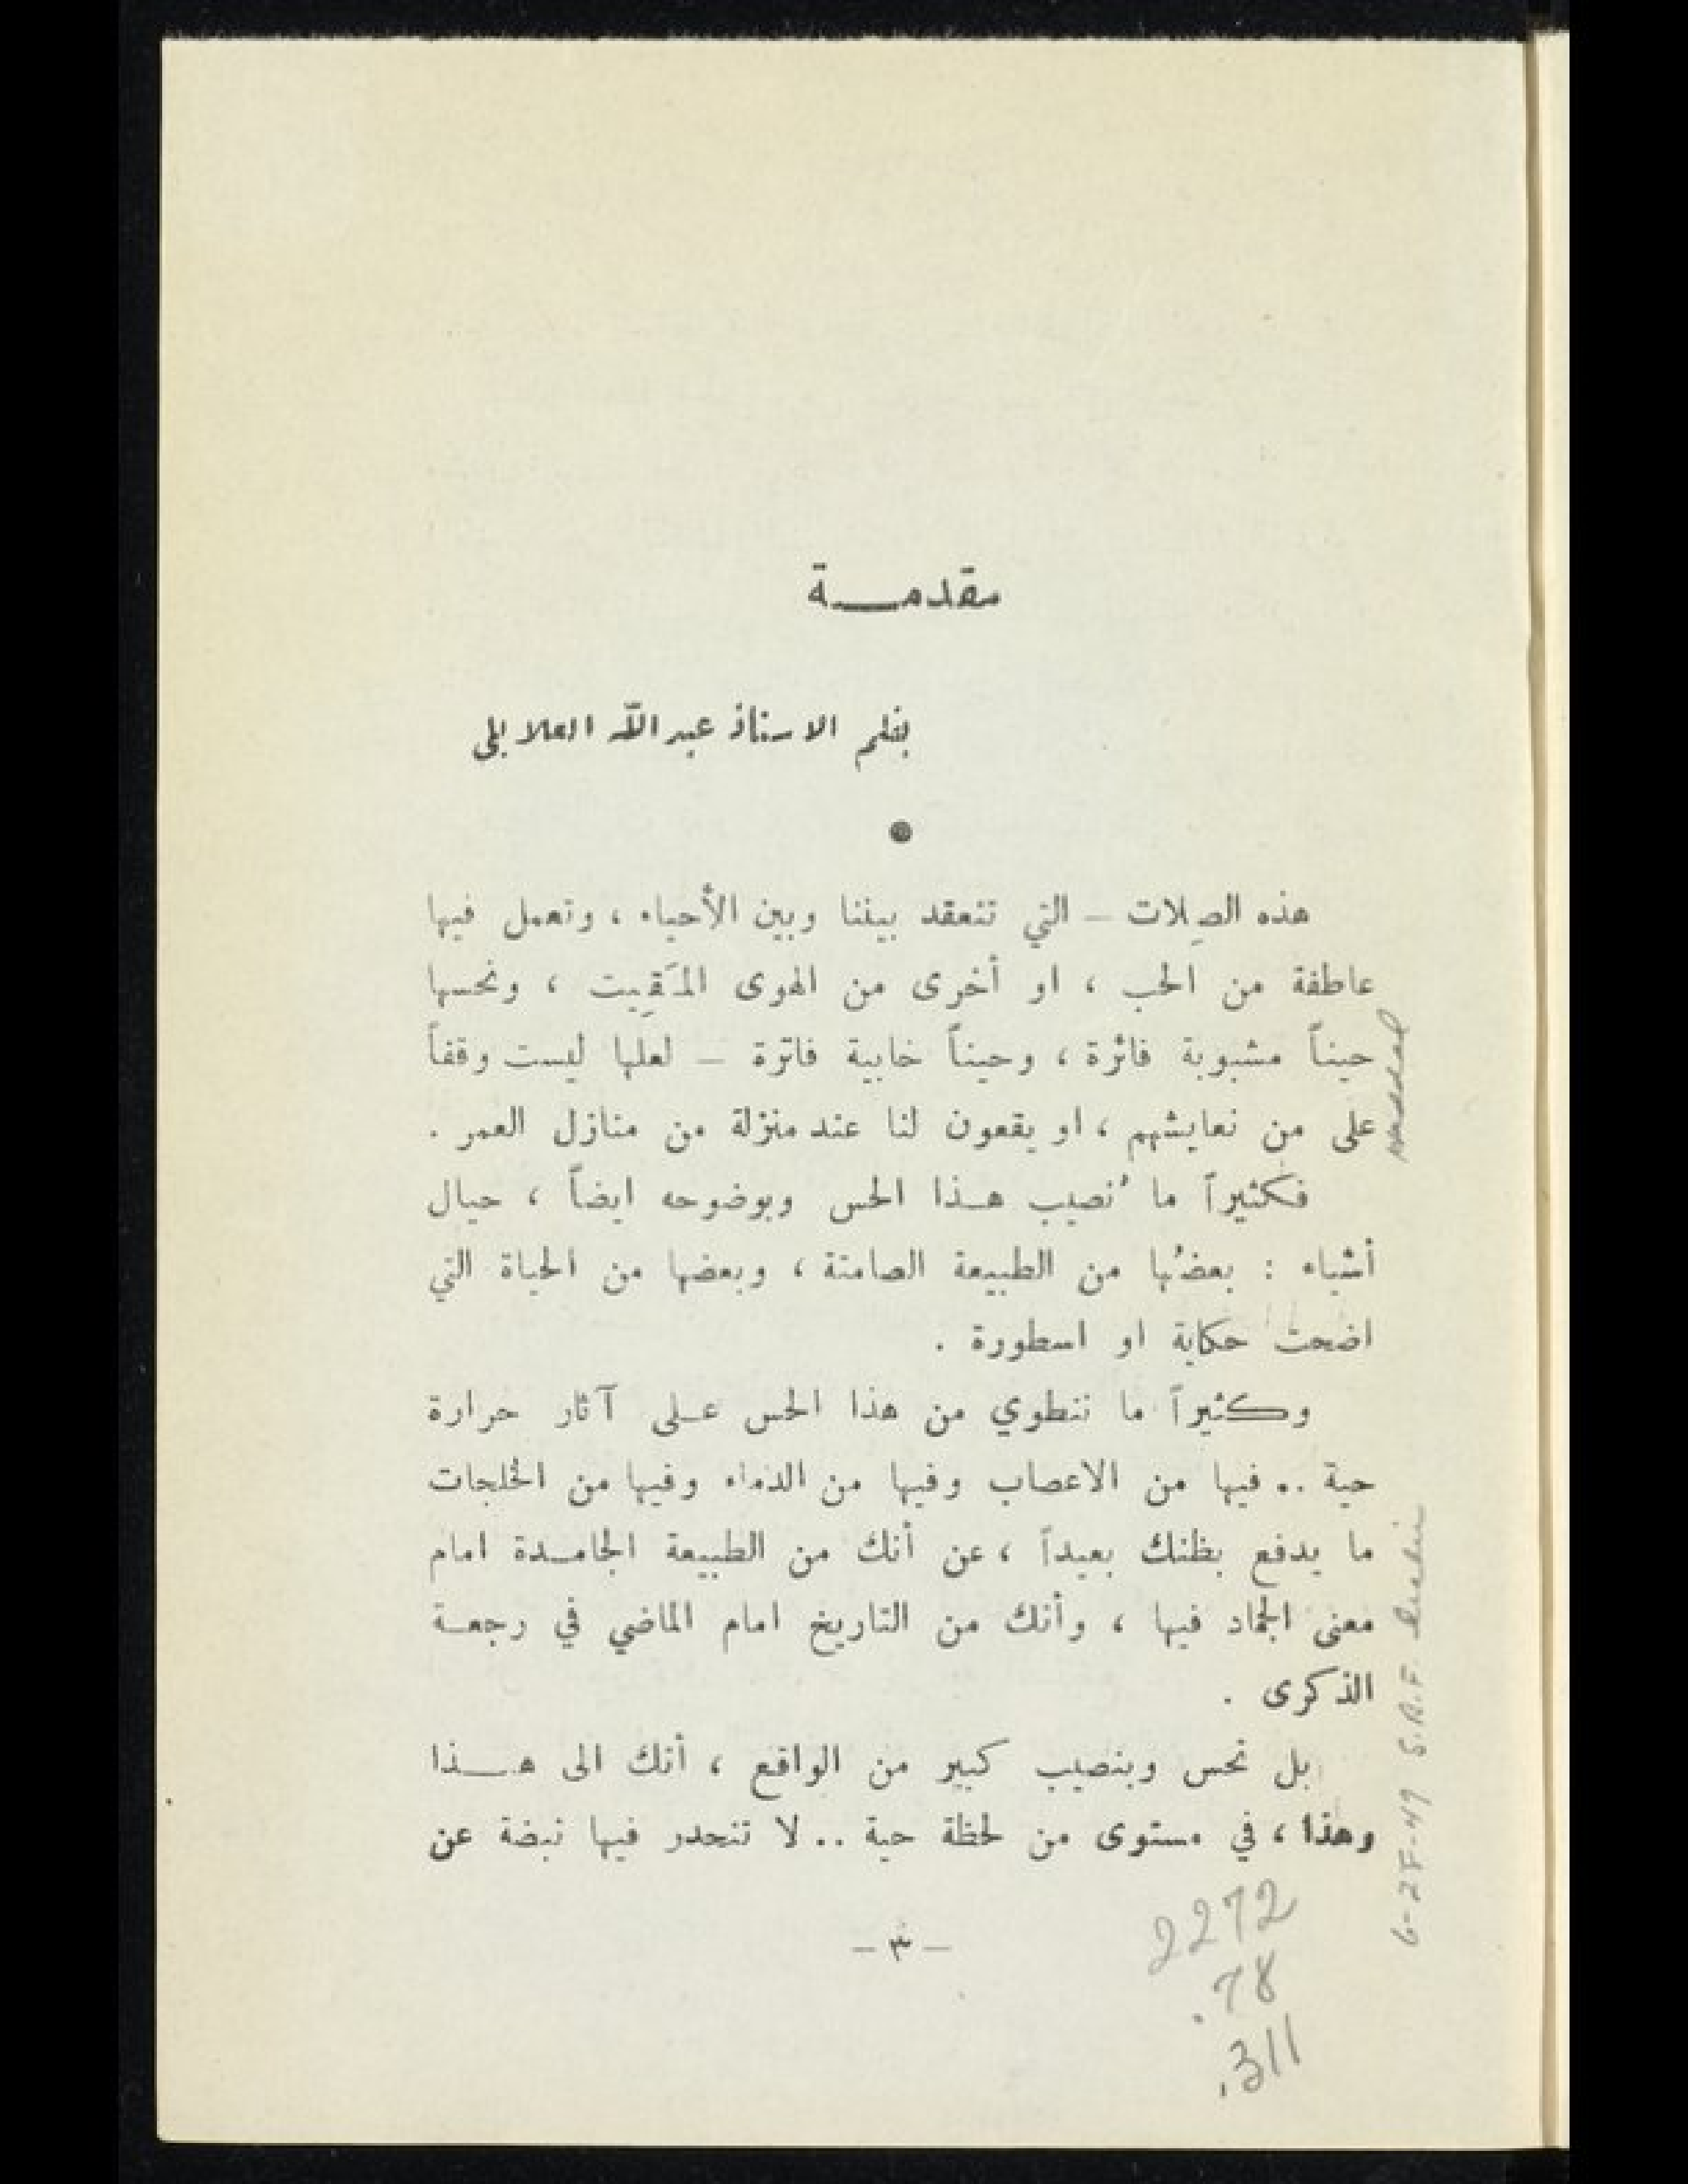 مقدمة
بقلم الاستاذ عبد الله العلايلي
هذه الصِلات – التي تنعقد بيننا وبين الأحياء ، وتعمل فيها
عاطفة من الحب ، او أخرى من الهوى المَقِيت ، ونحسها
حيناً مشبوبة فائرة ، وحيناً خابية فاترة – لعلها ليست وقفاً
على من نعايشهم ، او يقعون لنا عند منزلة من منازل العمر .
فكثيراً ما نُصيب هذا الحس وبوضوحه ايضاً ، حيال
أشياء : بعضُها من الطبيعة الصامتة ، وبعضها من الحياة التي
اضحت حكاية او اسطورة .
وكثيراً ما ننطوي من هذا الحس على آثار حرارة
حية .. فيها من الاعصاب وفيها من الدماء وفيها من الخلجات
ما يدفع بظنك بعيداً ، عن أنك من الطبيعة الجامدة امام
معنى الجماد فيها ، وأنك من التاريخ امام الماضي في رجعة
الذكرى .
بل نحس وبنصيب كبير من الواقع ، أنك الى هذا
وهذا ، في مستوى من لحظة حية .. لا تنحدر فيها نبضة عن
– ٣ –
2272
.78
.311
6-28-49 S.A.F.